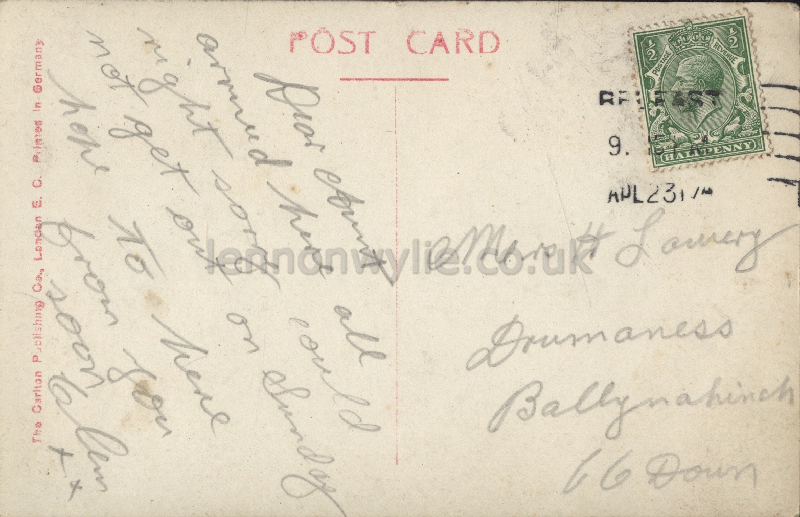 POST CARD
Dear Aunt
arrived here all
right sorry could
not get out on Sunday
hope to here
from you
soon
x x
½ ½
POSTAGE REVENUE
HALFPENNY
BELFAST
9.
APL 23 17
Mrs H Lowery
Drumaness
Ballynahinch
Co Down
The Carlton Publishing Co., London E. C. Printed in Germany
lennonwylie.co.uk